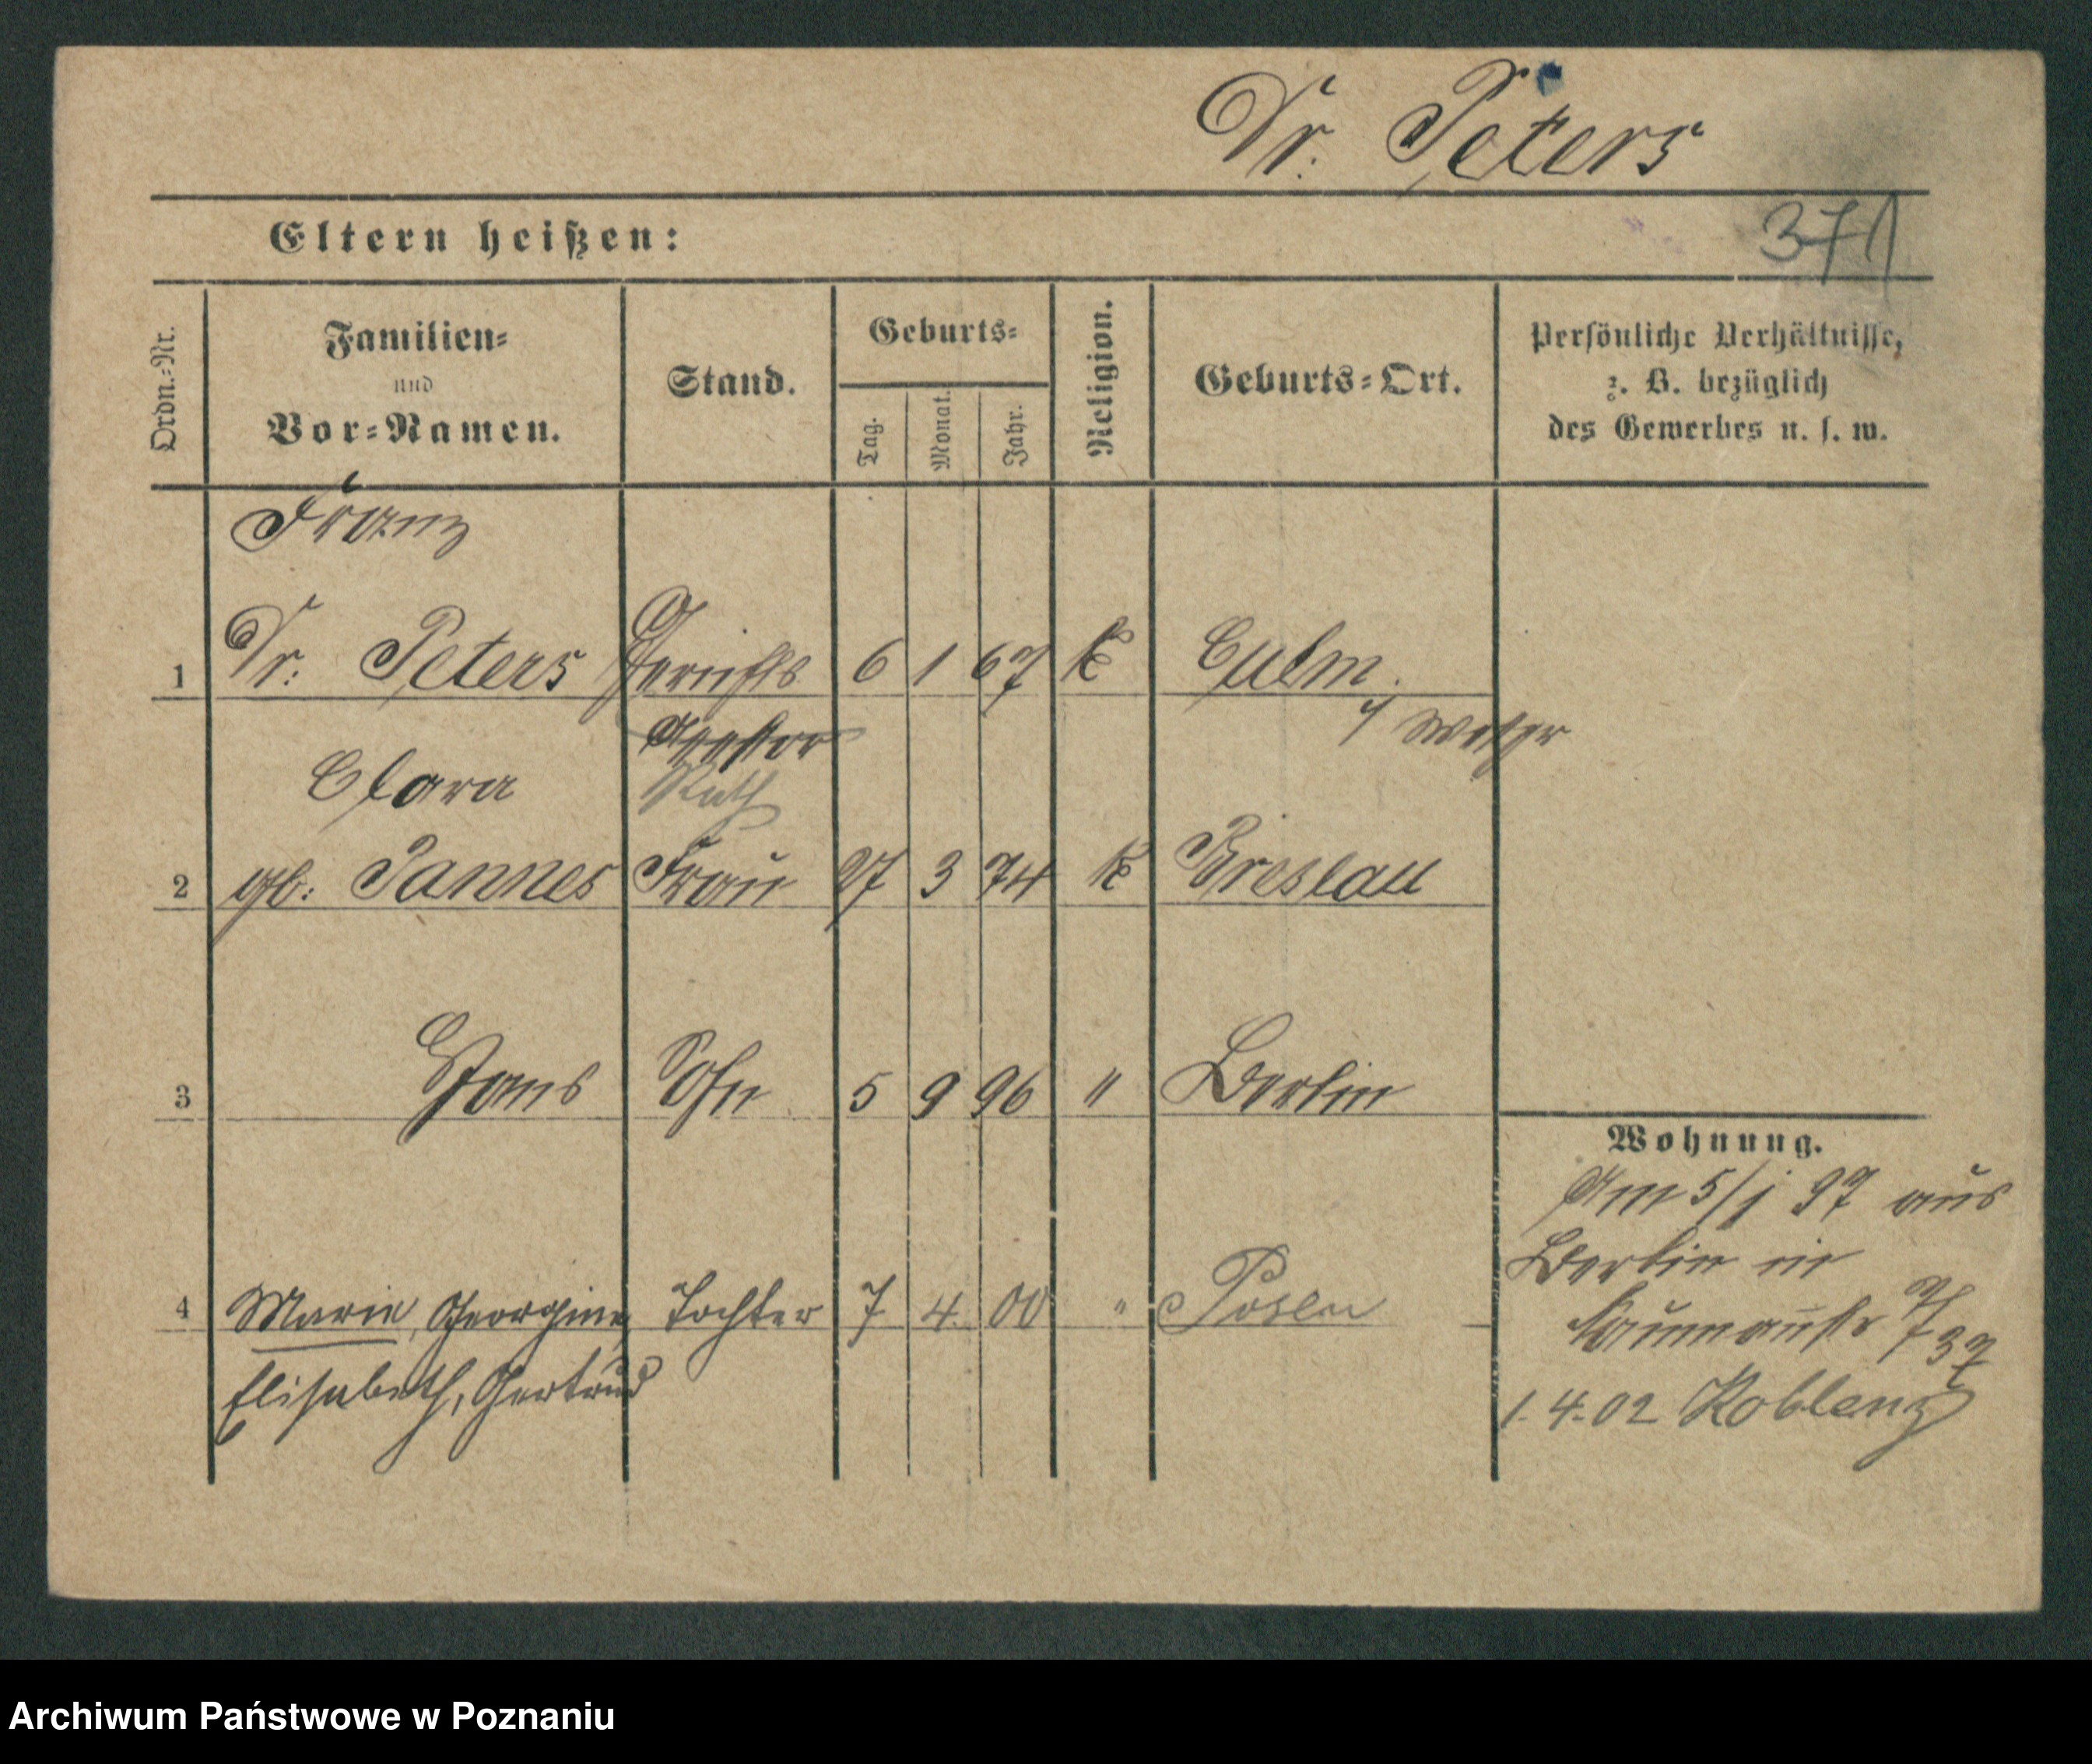 Dr. Peters
371
Eltern heißen:
Ordn.-Nr.
Familien-
und
Vor-Namen.
Stand.
Geburts-
Tag.
Monat.
Jahr.
Religion.
Geburts-Ort.
Persönliche Verhältnisse,
z. B. bezüglich
des Gewerbes u. s. w.
Franz
1 Dr. Peters Gerichts 6 1 67 K Culm
Assessor
Rath
Clara
2 gb: Jannes Frau 27 3 74 K Breslau
3 Hans Sohn 5 9 96 " Berlin
4 Marie, Georgine Tochter 7 4. 00 " Posen
Elisabeth, Gertrud
Wohnung.
Am 5/1 97 aus
Berlin in
Naumannstr
1. 4. 02 Koblenz
Archiwum Państwowe w Poznaniu